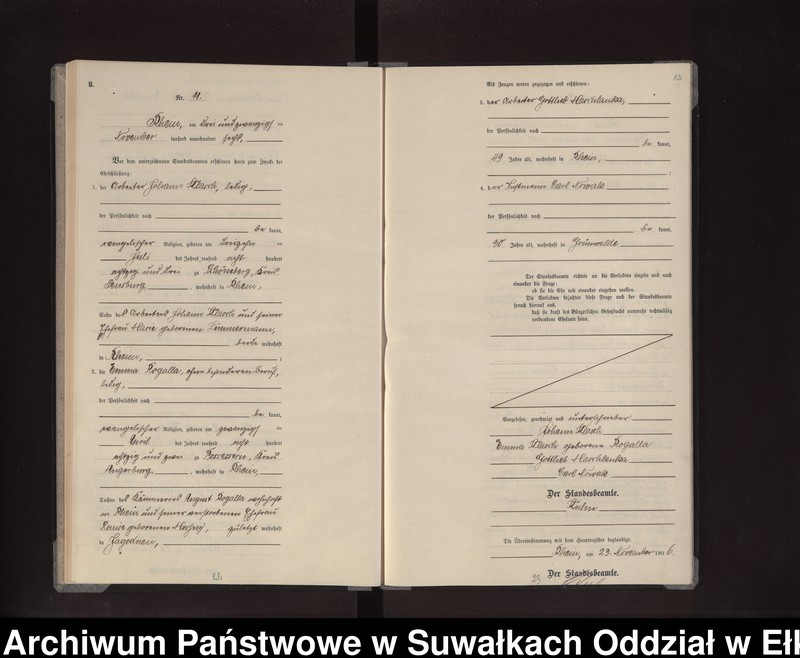 B.
Nr. 41.
Rhein, am drei und zwanzigsten
November tausend neunhundert sechs
Vor dem unterzeichneten Standesbeamten erschienen heute zum Zwecke der
Eheschließung:
1. der Arbeiter Johann, ledig,
der Persönlichkeit nach
be kannt,
evangelischer Religion, geboren am dreizehnten
Juli des Jahres tausend acht hundert
achtzig und drei zu Schöneberg, Kreis
Sensburg, wohnhaft in Rhein,
Sohn des Arbeiters Johann und seiner
Ehefrau Marie geborenen Zimmermann,
beide wohnhaft
in Rhein,
2. die Emma Rogalla, ohne besonderen Beruf,
ledig,
der Persönlichkeit nach
be kannt,
evangelischer Religion, geboren am zwanzigsten
April des Jahres tausend acht hundert
achtzig und zwei zu Kreis
Angerburg, wohnhaft in Rhein,
Tochter des Kämmerers August Rogalla wohnhaft
in Rhein und seiner verstorbenen Ehefrau
Louise geborenen zuletzt wohnhaft
in Jagodnen,
Als Zeugen waren zugezogen und erschienen:
3. der Arbeiter Gottlieb Maschlanka,
der Persönlichkeit nach
be kannt,
49 Jahre alt, wohnhaft in Rhein,
4. der Carl Nowak
der Persönlichkeit nach
be kannt,
30 Jahre alt, wohnhaft in Grünwalde
Der Standesbeamte richtete an die Verlobten einzeln und nach
einander die Frage:
ob sie die Ehe mit einander eingehen wollen.
Die Verlobten bejahten diese Frage und der Standesbeamte
sprach hierauf aus,
daß sie kraft des Bürgerlichen Gesetzbuchs nunmehr rechtmäßig
verbundene Eheleute seien.
Vorgelesen, genehmigt und unterschrieben
Johann
Emma geborene Rogalla
Gottlieb Maschlanka
Carl Nowak
Der Standesbeamte.
Die Übereinstimmung mit dem Hauptregister beglaubigt
Rhein, am 23. November 1906.
Der Standesbeamte.
Archiwum Państwowe w Suwałkach Oddział w Ełk